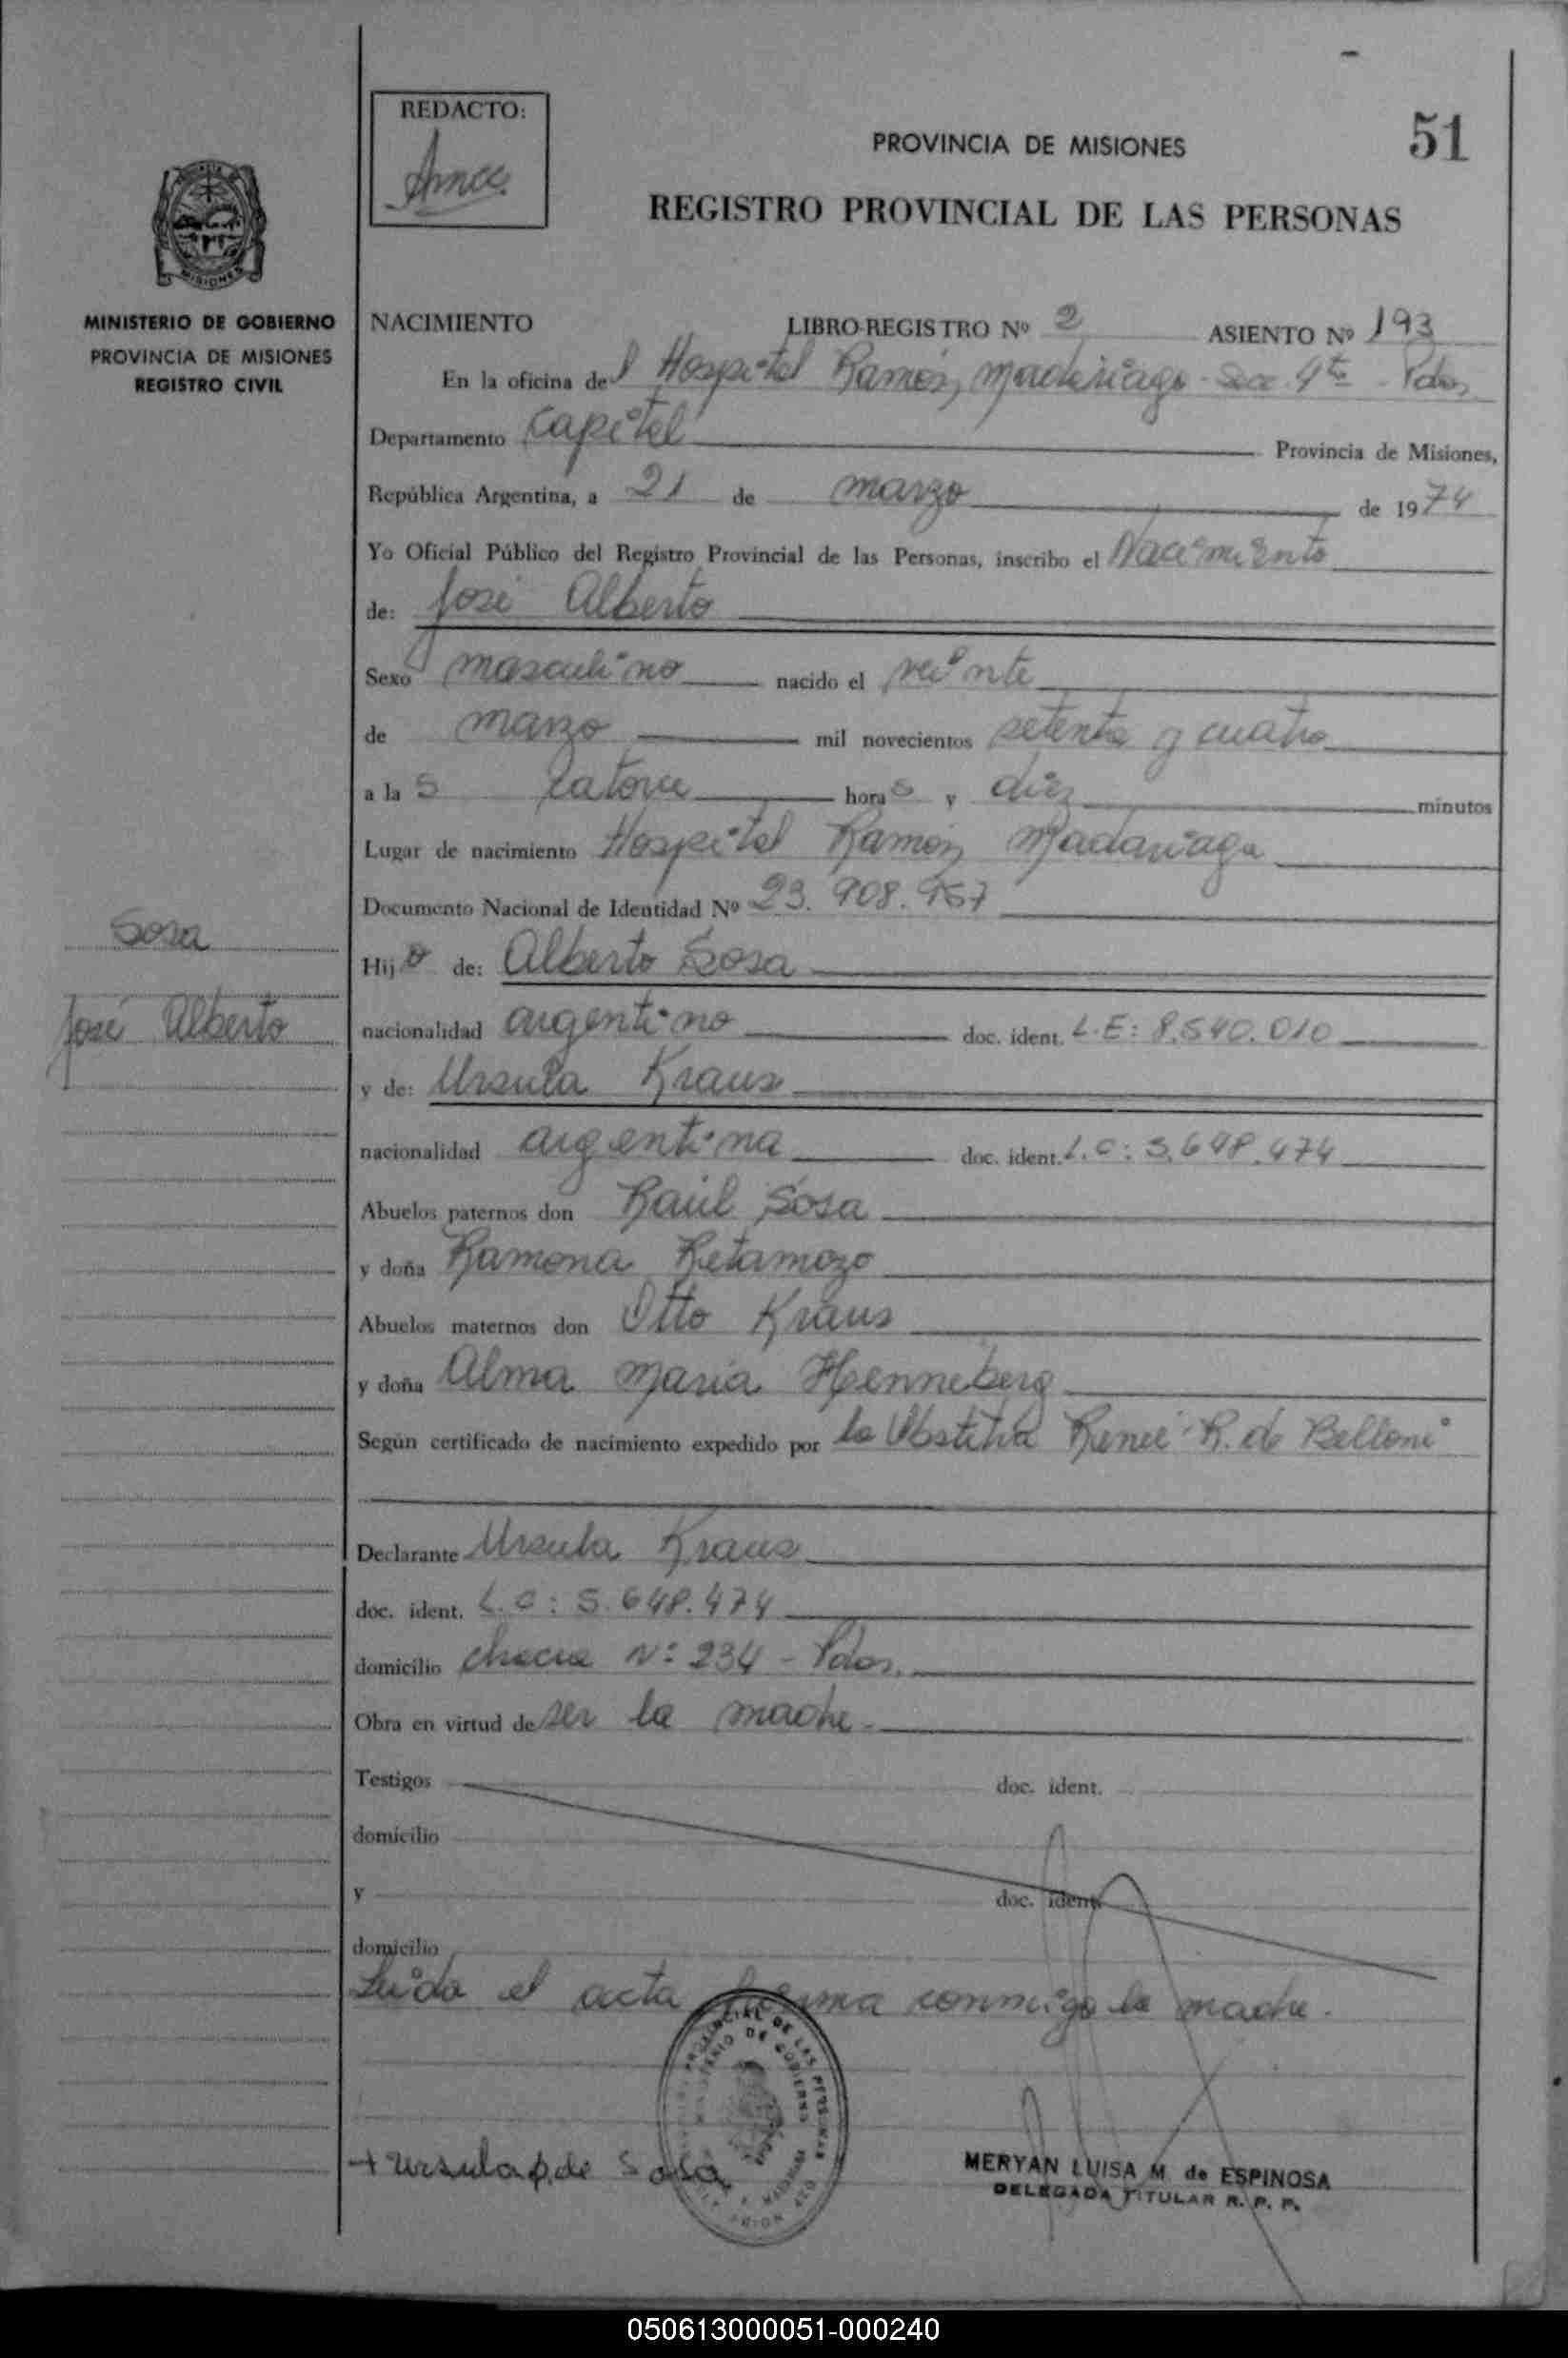 51
REDACTO:
PROVINCIA DE MISIONES
REGISTRO PROVINCIAL DE LAS PERSONAS
MISIONES
MINISTERIO DE GOBIERNO
PROVINCIA DE MISIONES
REGISTRO CIVIL
NACIMIENTO LIBRO-REGISTRO Nº 2 ASIENTO Nº 193
En la oficina del Hospital Ramón Madariaga - Secc. 4ta - Pdas,
Departamento Capital Provincia de Misiones,
República Argentina, a 21 de marzo de 1974
Yo Oficial Público del Registro Provincial de las Personas, inscribo el Nacimiento
de: José Alberto
Sexo masculino nacido el veinte
de marzo mil novecientos setenta y cuatro
a las catorce horas y diez minutos
Lugar de nacimiento Hospital Ramón Madariaga
Documento Nacional de Identidad Nº 23.908.957
Sosa
José Alberto
Hijo de: Alberto Sosa
nacionalidad argentino doc. ident. L.E: 8.540.010
y de: Ursula Kraus
nacionalidad argentina doc. ident. L.C: 5.648.474
Abuelos paternos don Raúl Sosa
y doña Ramona Retamozo
Abuelos maternos don Otto Kraus
y doña Alma María Henneberg
Según certificado de nacimiento expedido por la Obstetra Reneé R. de Belloni
Declarante Ursula Kraus
doc. ident. L.C: 5.648.474
domicilio chacra Nº 234 - Pdas.
Obra en virtud de ser la madre.
Testigos doc. ident.
domicilio
y doc. ident.
domicilio
Leida el acta firma conmigo la madre.
+ Ursula de Sosa
MERYAN LUISA M. de ESPINOSA
DELEGADA TITULAR R. P. P.
050613000051-000240